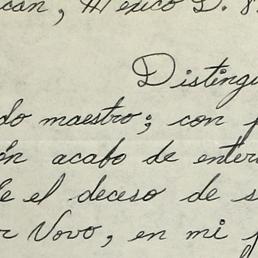 cán, México D. F.
Distingu
do maestro; con p
ón acabo de enter
e el deceso de s
r Vovo, en mi p